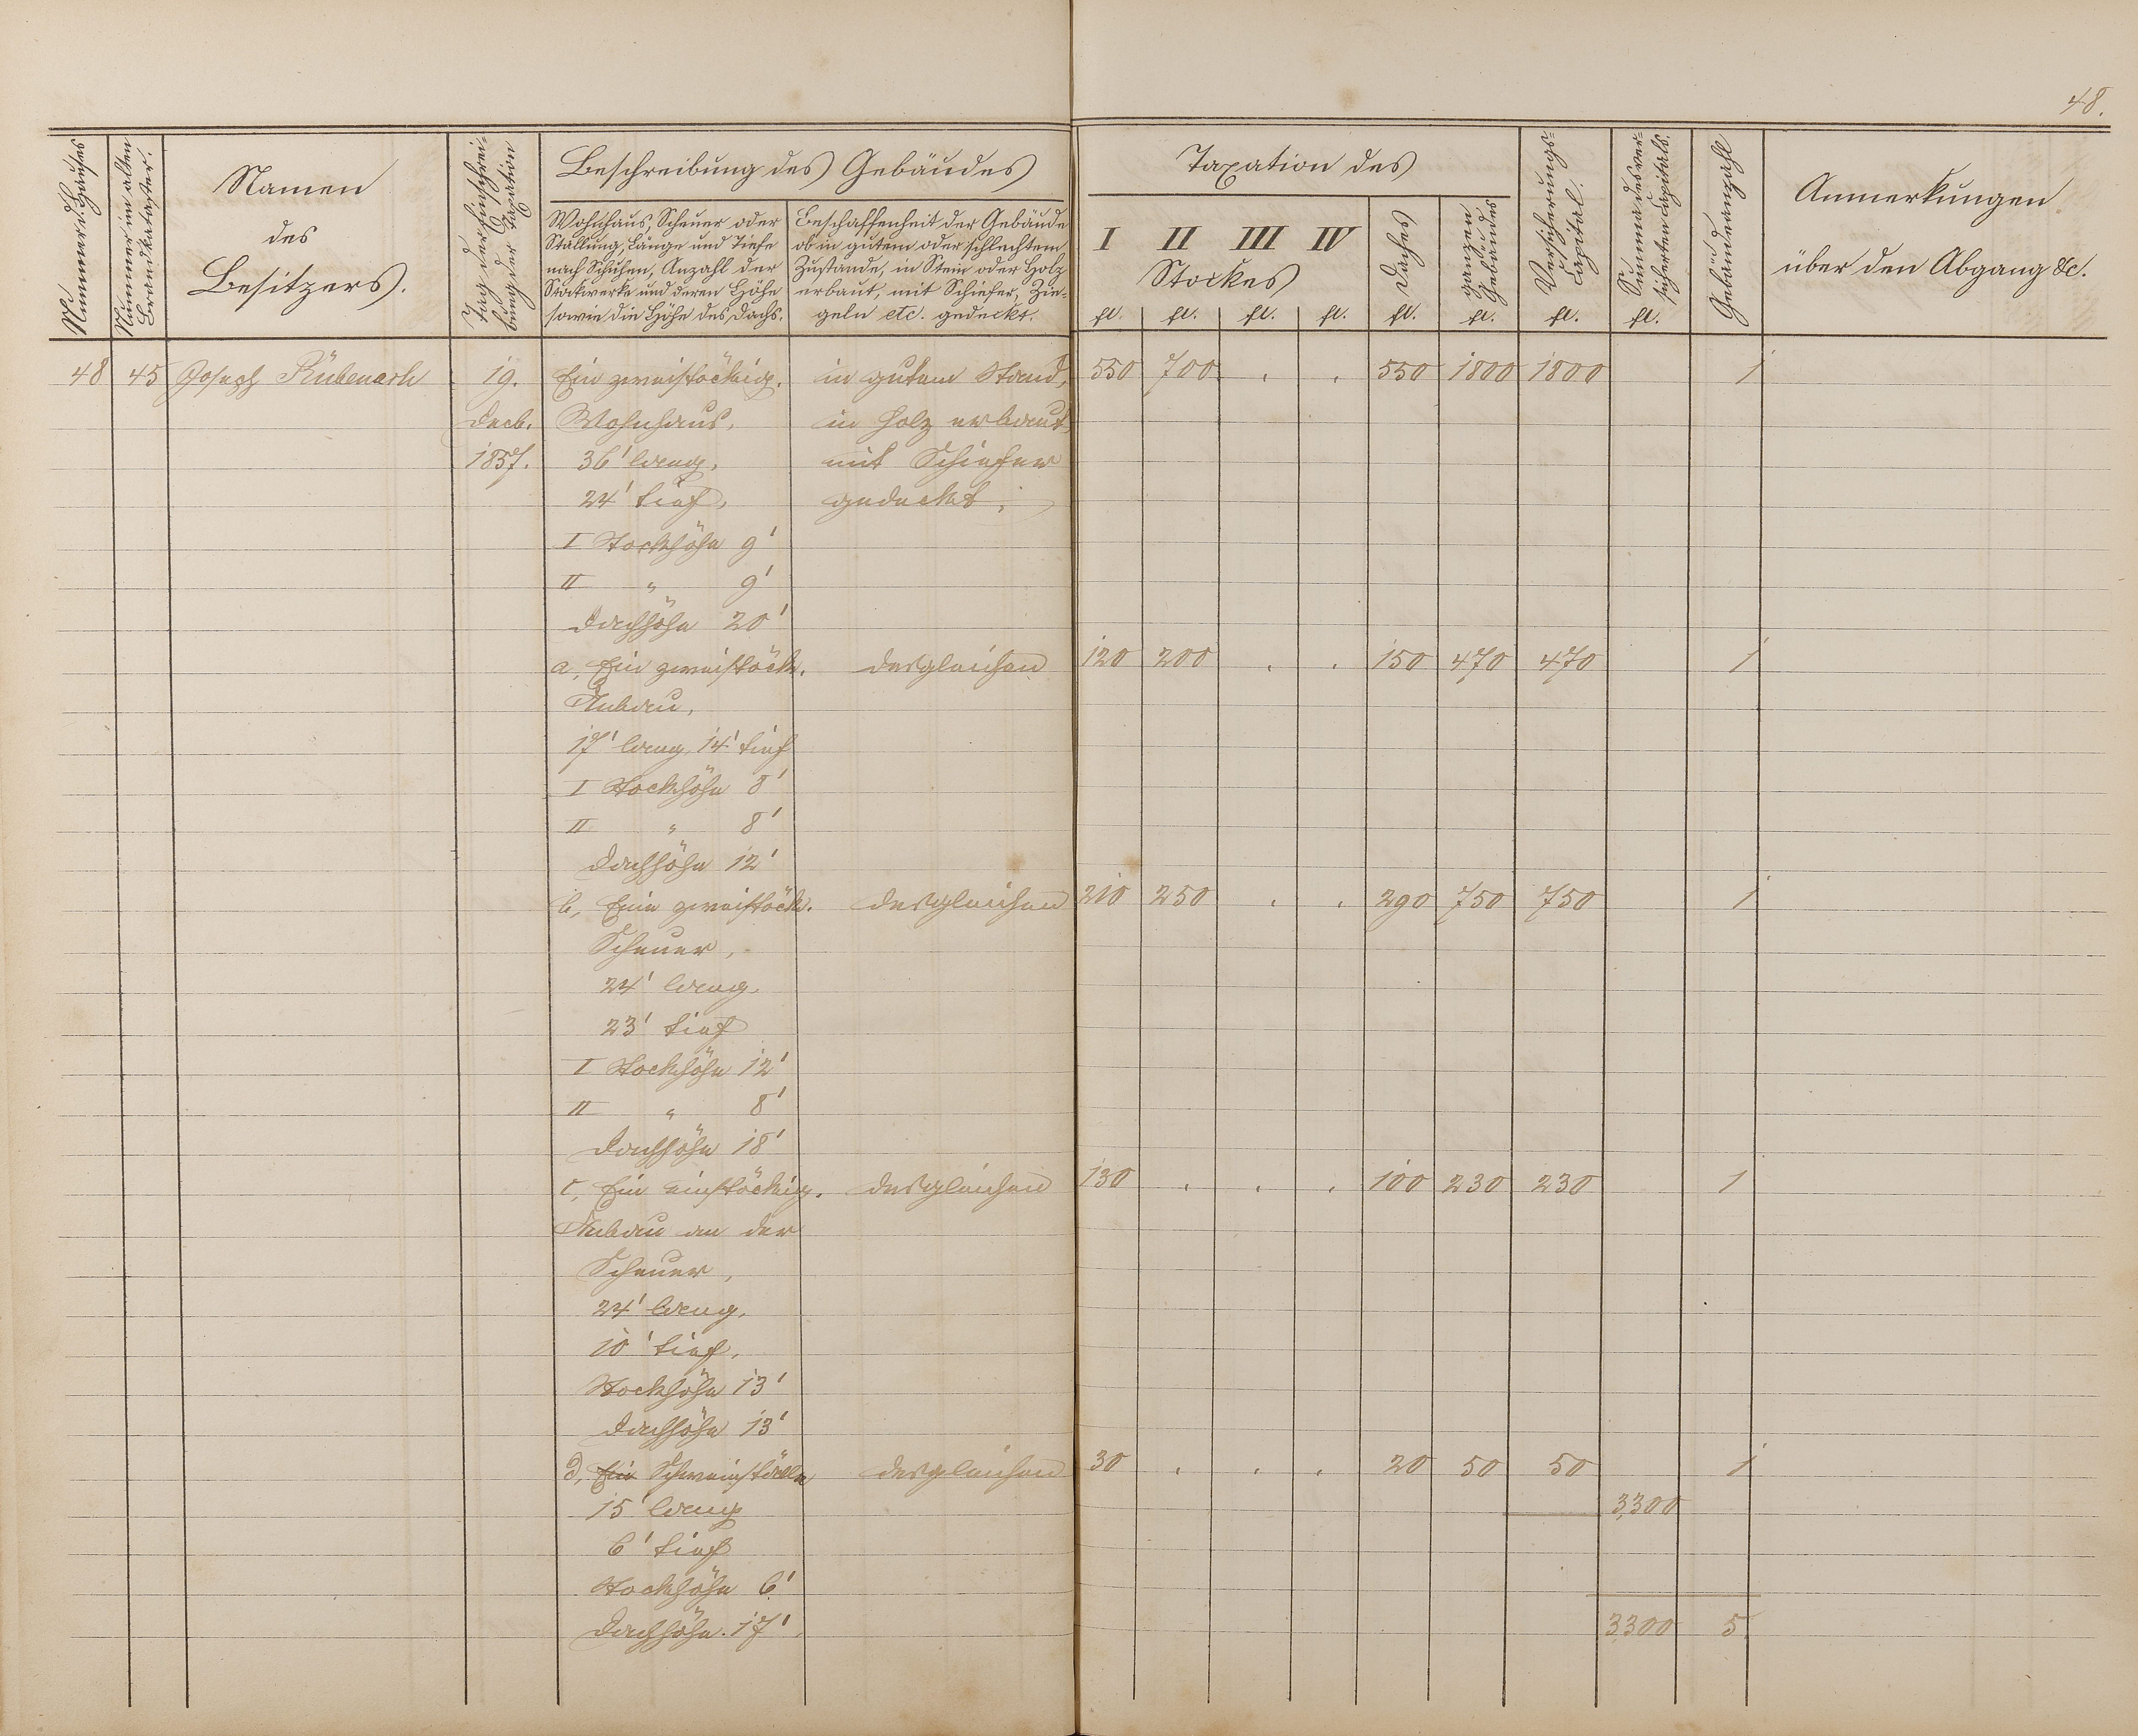 48.
Nummer d. Hauses
Nummer im alten
Brandkataster.
Namen
des
Besitzers.
Tag der Einschrei-
bung der Taxation
Beschreibung des Gebäudes
Wohnhaus, Scheuer oder
Stallung, Länge und Tiefe
nach Schuhen, Anzahl der
Stockwerke und deren Höhe
sowie die Höhe des Dachs.
Beschaffenheit der Gebäude
ob in gutem oder schlechtem
Zustande, in Stein oder Holz
erbaut, mit Schiefer, Zie-
geln etc. gedeckt.
Taxation des
I II III IV
Stockes
Daches
ganzen
Gebäudes
Versicherungs-
Capital.
Summa des ver-
sicherten Capitals.
Gebäudeanzahl
Anmerkungen
über den Abgang &c.
fl. fl. fl. fl. fl. fl. fl. fl.
48 45 Joseph 19. Ein zweistöckig. in gutem Stand, 550 700 . . 550 1800 1800 1
Decb. Wohnhaus, in Holz erbaut
1857. 36' lang, mit Schiefer
24' tief, gedeckt.
I Stockhöhe 9'
II " 9'
Dachhöhe 20'
a, Ein zweistöck. desgleichen 120 200 . . 150 470 470 1
Anbau,
17' lang, 14' tief
I Stockhöhe 8'
II " 8'
Dachhöhe 12'
b, Eine zweistöck. desgleichen 210 250 . . 290 750 750 1
Scheuer,
24' lang.
23' tief
I Stockhöhe 12'
II " 8'
Dachhöhe 18'
c, Ein einstöckig. desgleichen 130 . . . 100 230 230 1
Anbau an der
Scheuer,
24' lang,
10' tief,
Stockhöhe 13'
Dachhöhe 13'
d, Ein Schweinställe desgleichen 30 . . . 20 50 50 1
15' lang 3,300
6' tief
Stockhöhe 6'
Dachhöhe. 17' 3300 5